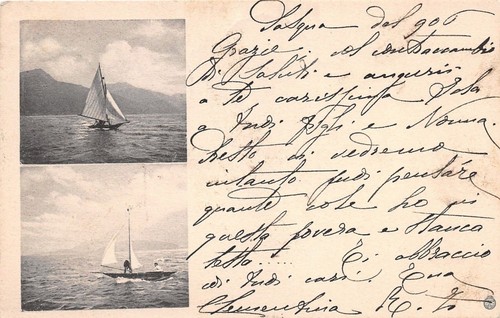 Pasqua del 906
Grazie.. ed in contraccambio
di saluti e auguri
a te carissima Rosa
a tuoi figli e Nonna.
Presto ci vedremo
intanto puoi pensare
quante cose ho in
questa povera e stanca
testa..... Ti abbraccio
coi tuoi cari. Tua
Clementina